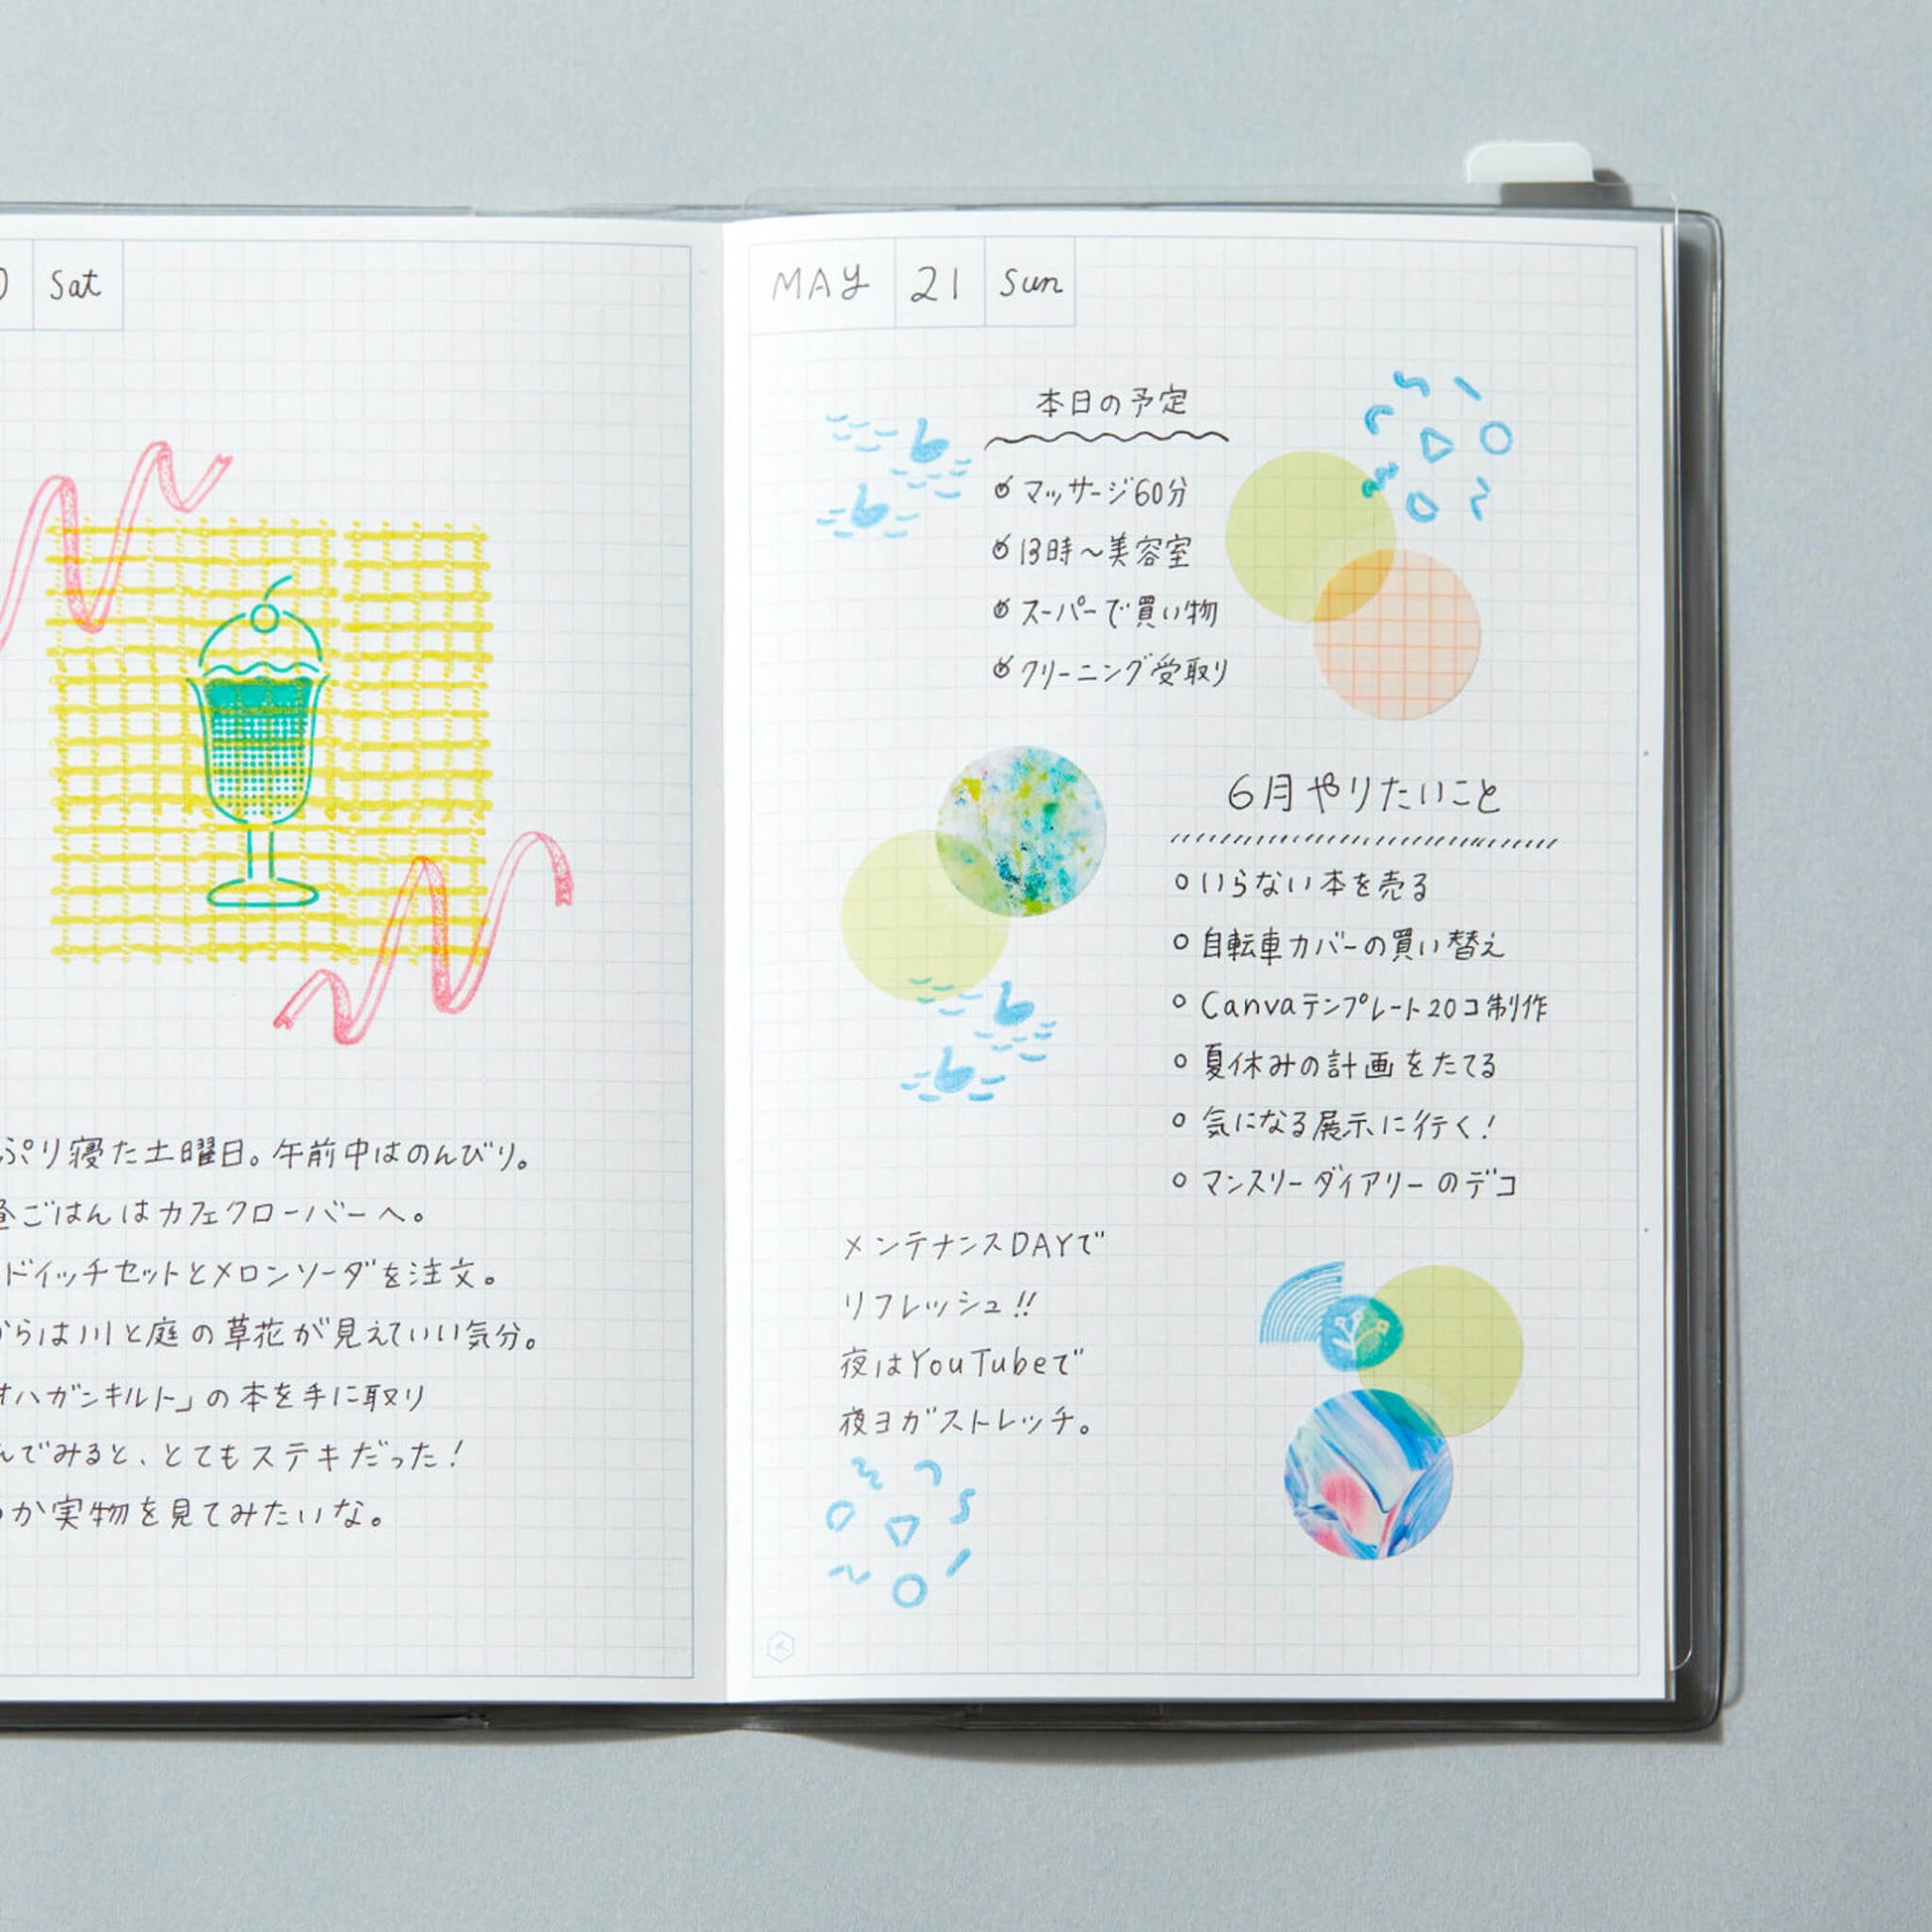 Sat
ぷり寝た土曜日。午前中はのんびり。
ごはんはカフェクローバーへ。
ドイッチセットとメロンソーダを注文。
らは川と庭の草花が見えていい気分。
オハガンキルト」の本を手に取り
んでみると、とてもステキだった!
か実物を見てみたいな。
MAY 21 Sun
本日の予定
マッサージ60分
13時〜美容室
スーパーで買い物
クリーニング受取り
6月やりたいこと
いらない本を売る
自転車カバーの買い替え
Canvaテンプレート20コ制作
夏休みの計画をたてる
気になる展示に行く!
マンスリーダイアリーのデコ
メンテナンスDAYで
リフレッシュ!!
夜はYouTubeで
夜ヨガストレッチ。